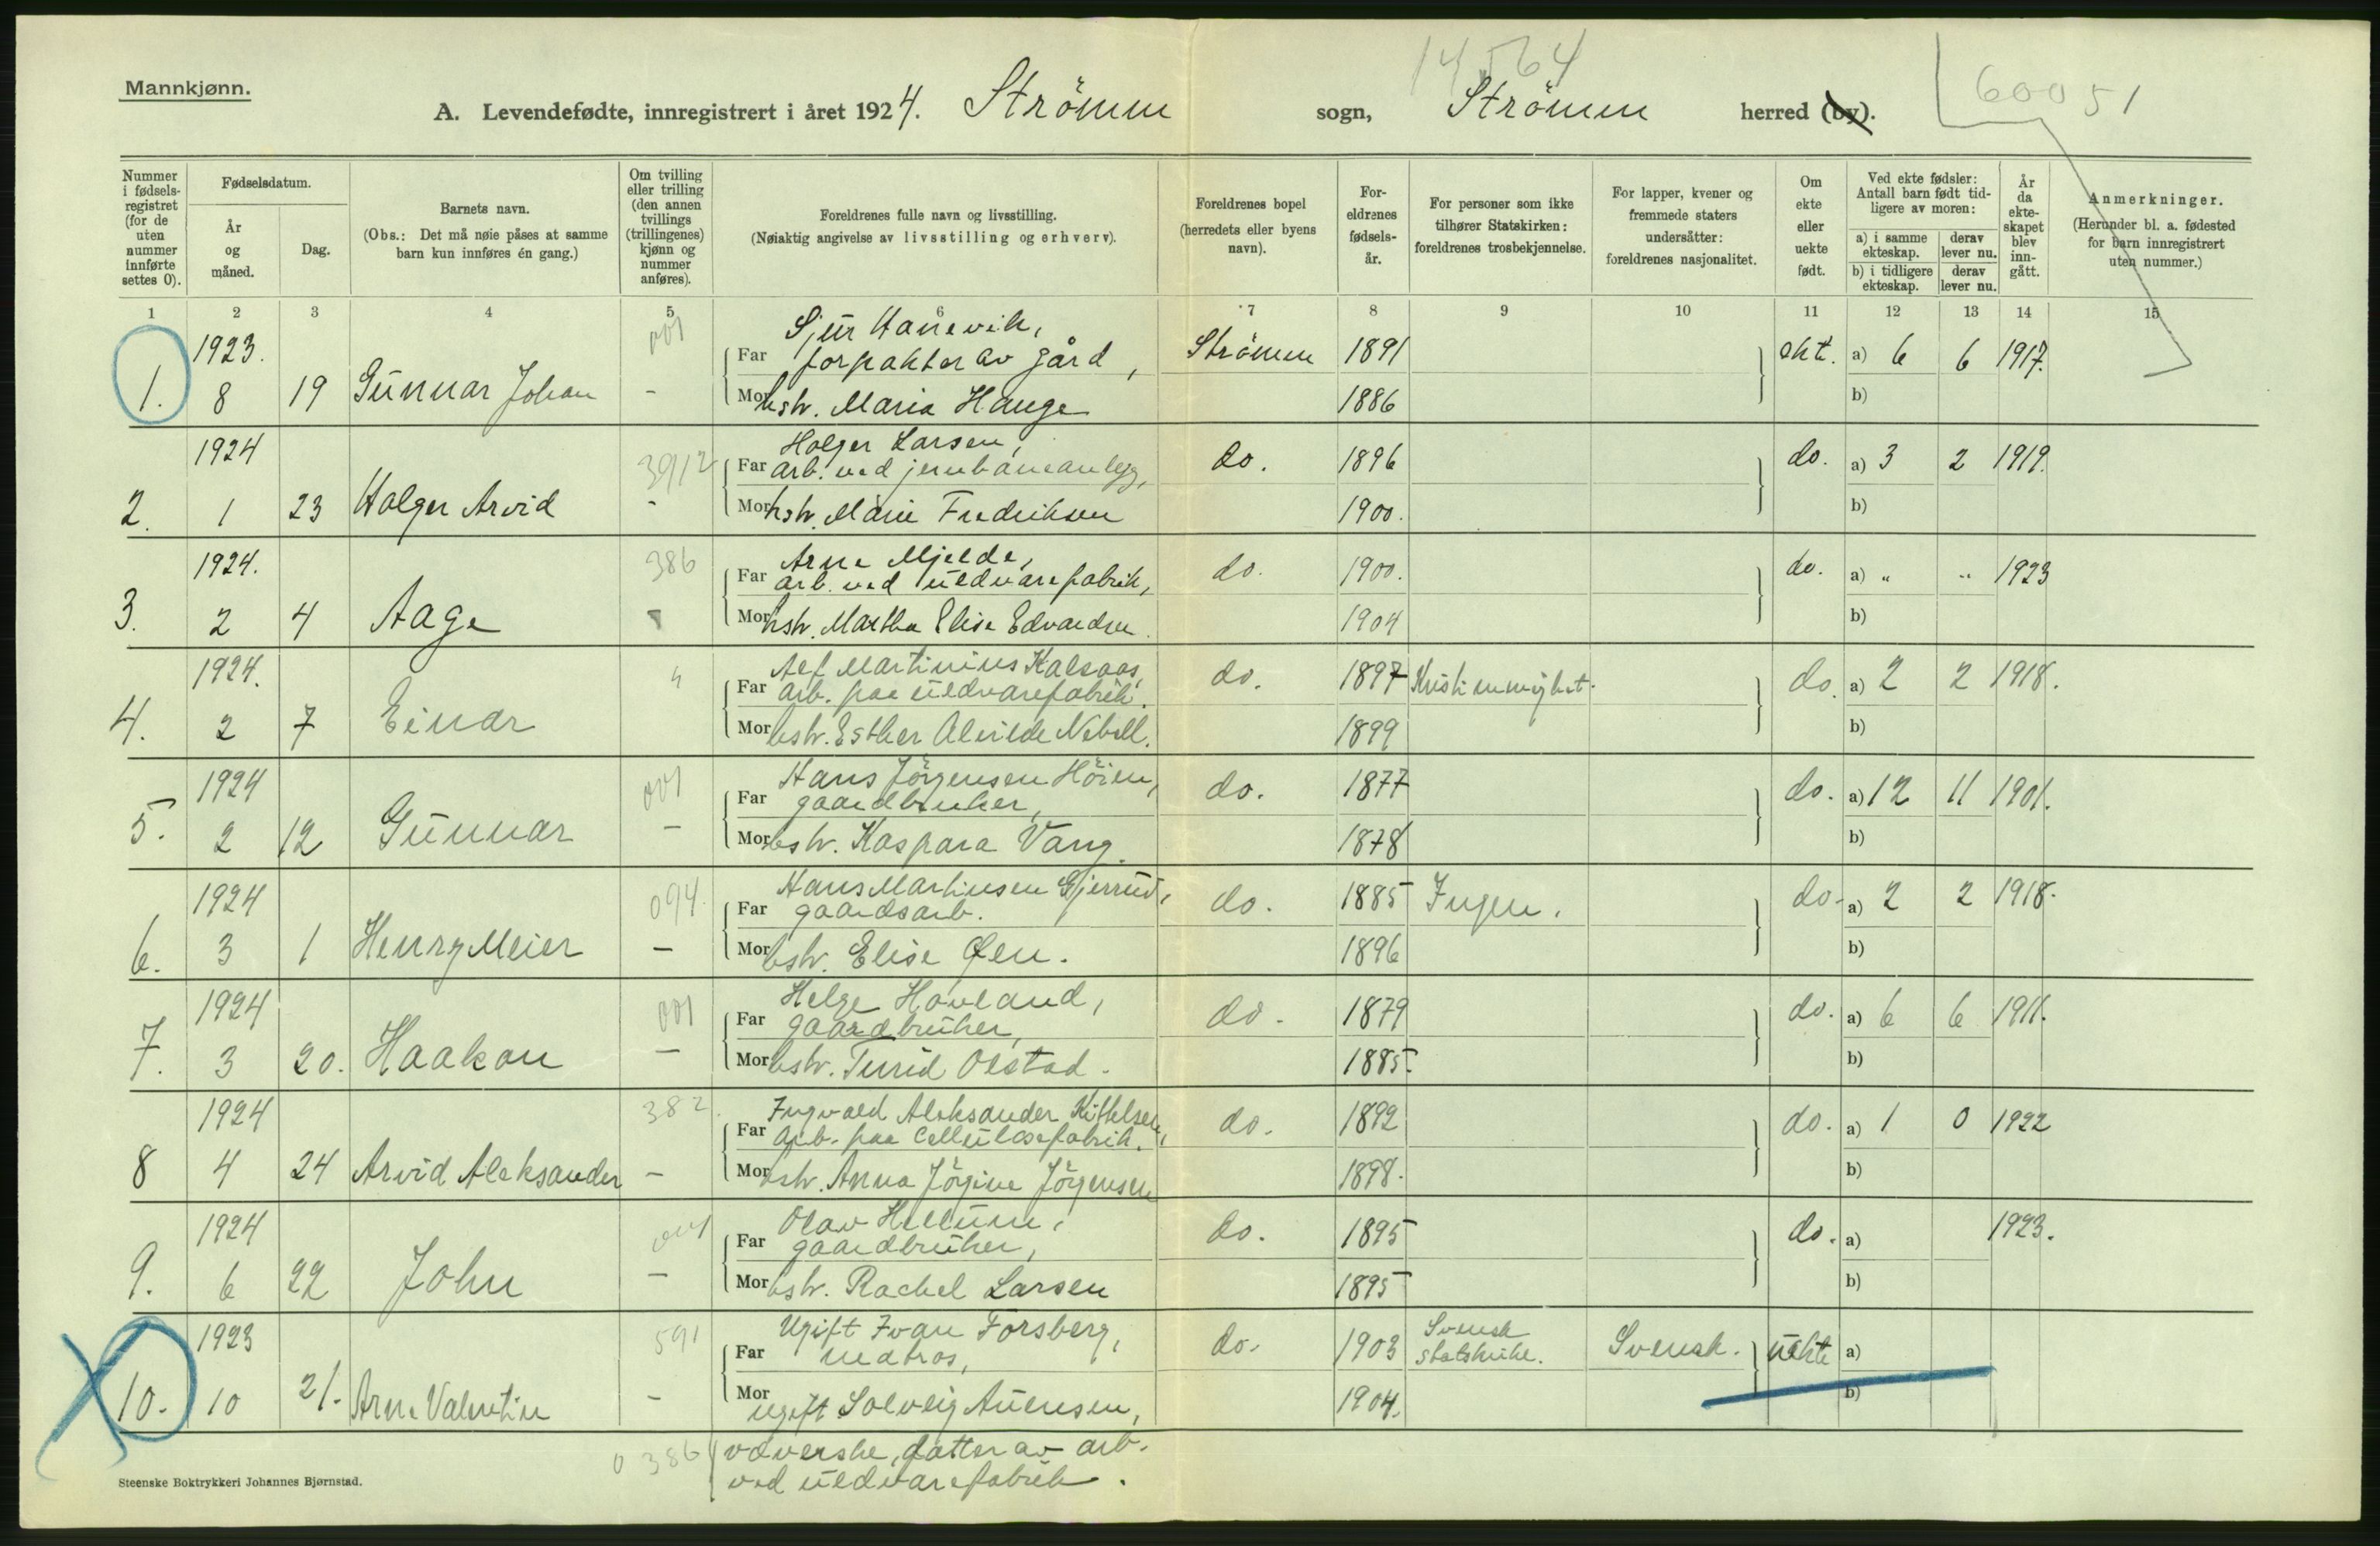 14564
60051
Mannkjønn.
A. Levendefødte, innregistrert i året 1924. Strömm sogn, Strömm herred (by).
Nummer i fødsels-registret (for de uten nummer innførte settes 0).
Fødselsdatum.
År og måned.
Dag.
Barnets navn.
(Obs.: Det må nøie påses at samme barn kun innføres én gang.)
Om tvilling eller trilling (den annen tvillings (trillingenes) kjønn og nummer anføres).
Foreldrenes fulle navn og livsstilling.
(Nøiaktig angivelse av livsstilling og erhverv).
Foreldrenes bopel (herredets eller byens navn).
For-eldrenes fødsels-år.
For personer som ikke tilhører Statskirken: foreldrenes trosbekjennelse.
For lapper, kvener og fremmede staters undersåtter: foreldrenes nasjonalitet.
Om ekte eller uekte født.
Ved ekte fødsler: Antall barn født tid-ligere av moren:
a) i samme ekteskap.
derav lever nu.
b) i tidligere ekteskap.
derav lever nu.
År da ekte-skapet blev inn-gått.
Anmerkninger.
(Herunder bl. a. fødested for barn innregistrert uten nummer.)
1 2 3 4 5 6 7 8 9 10 11 12 13 14 15
1923. 001 Sjur Hanevik,
Far forpakter av gård, Strömm 1891 ekt. a) 6 6 1917.
1. 8 19 Gunnar Johan - Mor hstr. Maria Hauge 1886 b)
1924 3912 Holger Larsen,
Far arb. ved jernbaneanlegg, do. 1896 do. a) 3 2 1919.
2. 1 23 Holger Arvid - Mor hstr. Marie Fredriksen 1900. b)
1924. 386 Arne Mjelde,
Far arb. ved uldvarefabrik, do. 1900. do. a) " " 1923
3. 2 4 Aage Mor hstr. Martha Elise Edvardsen. 1904 b)
1924. Alf Martinius Kalsaas,
Far arb. paa uldvarefabrik. do. 1897 do. a) 2 2 1918.
4. 2 7 Einar Mor hstr. Esther Alvilde Nebell. 1899 b)
1924 001 Hans Jörgensen Höien,
Far gaardbruker, do. 1877 do. a) 12 11 1901.
5. 2 12 Gunnar - Mor hstr. Kaspara Vang. 1878 b)
1924 094. Hans Martinsen Gjerrud,
Far gaardsarb. do. 1885 Ingen. do. a) 2 2 1918.
6. 3 1 Henry Meier - Mor hstr. Elise Øen. 1896 b)
1924 001 Helge Hovland,
Far gaardbruker, do. 1879 do. a) 6 6 1911.
7. 3 20. Haakon - Mor hstr. Turid Olstad. 1885. b)
1924 382. Ingvald Aleksander Kittelsen,
Far arb. paa Cellulosefabrik. do. 1892 do. a) 1 0 1922
8 4 24 Arvid Aleksander - Mor hstr. Anna Jörgine Jörgensen 1898. b)
1924 001 Olav Hellum,
Far gaardbruker, do. 1895 do. a) 1923.
9. 6 22 John - Mor hstr. Rachel Larsen 1895 b)
1923 591 Ugift Ivan Forsberg,
Far matros, do. 1903 Svensk statskirke. Svensk. uekte a)
10. 10 21. Arne Valentin - Mor ugift Solveig Auensen, 1904. b)
0 386 væverske, datter av arb.
ved uldvarefabrik.
Steenske Boktrykkeri Johannes Bjørnstad.